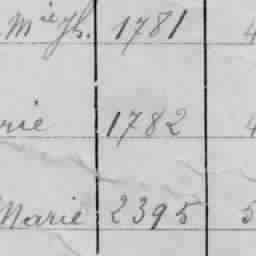 Mie Jh. 1781 4
rie 1782 4
Marie 2395 5